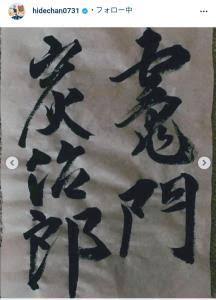 hidechan0731 ・フォロー中
竈門
炭治郎